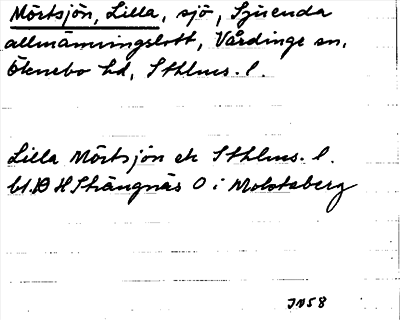 Mörtsjön, Lilla, sjö, Sjuenda
allmänningslott, Vårdinge sn,
Öknebo hd, Sthlms. l.
Lilla Mörtsjön ek Sthlms. l.
bl. B H Strängnäs O i Molstaberg
JN58